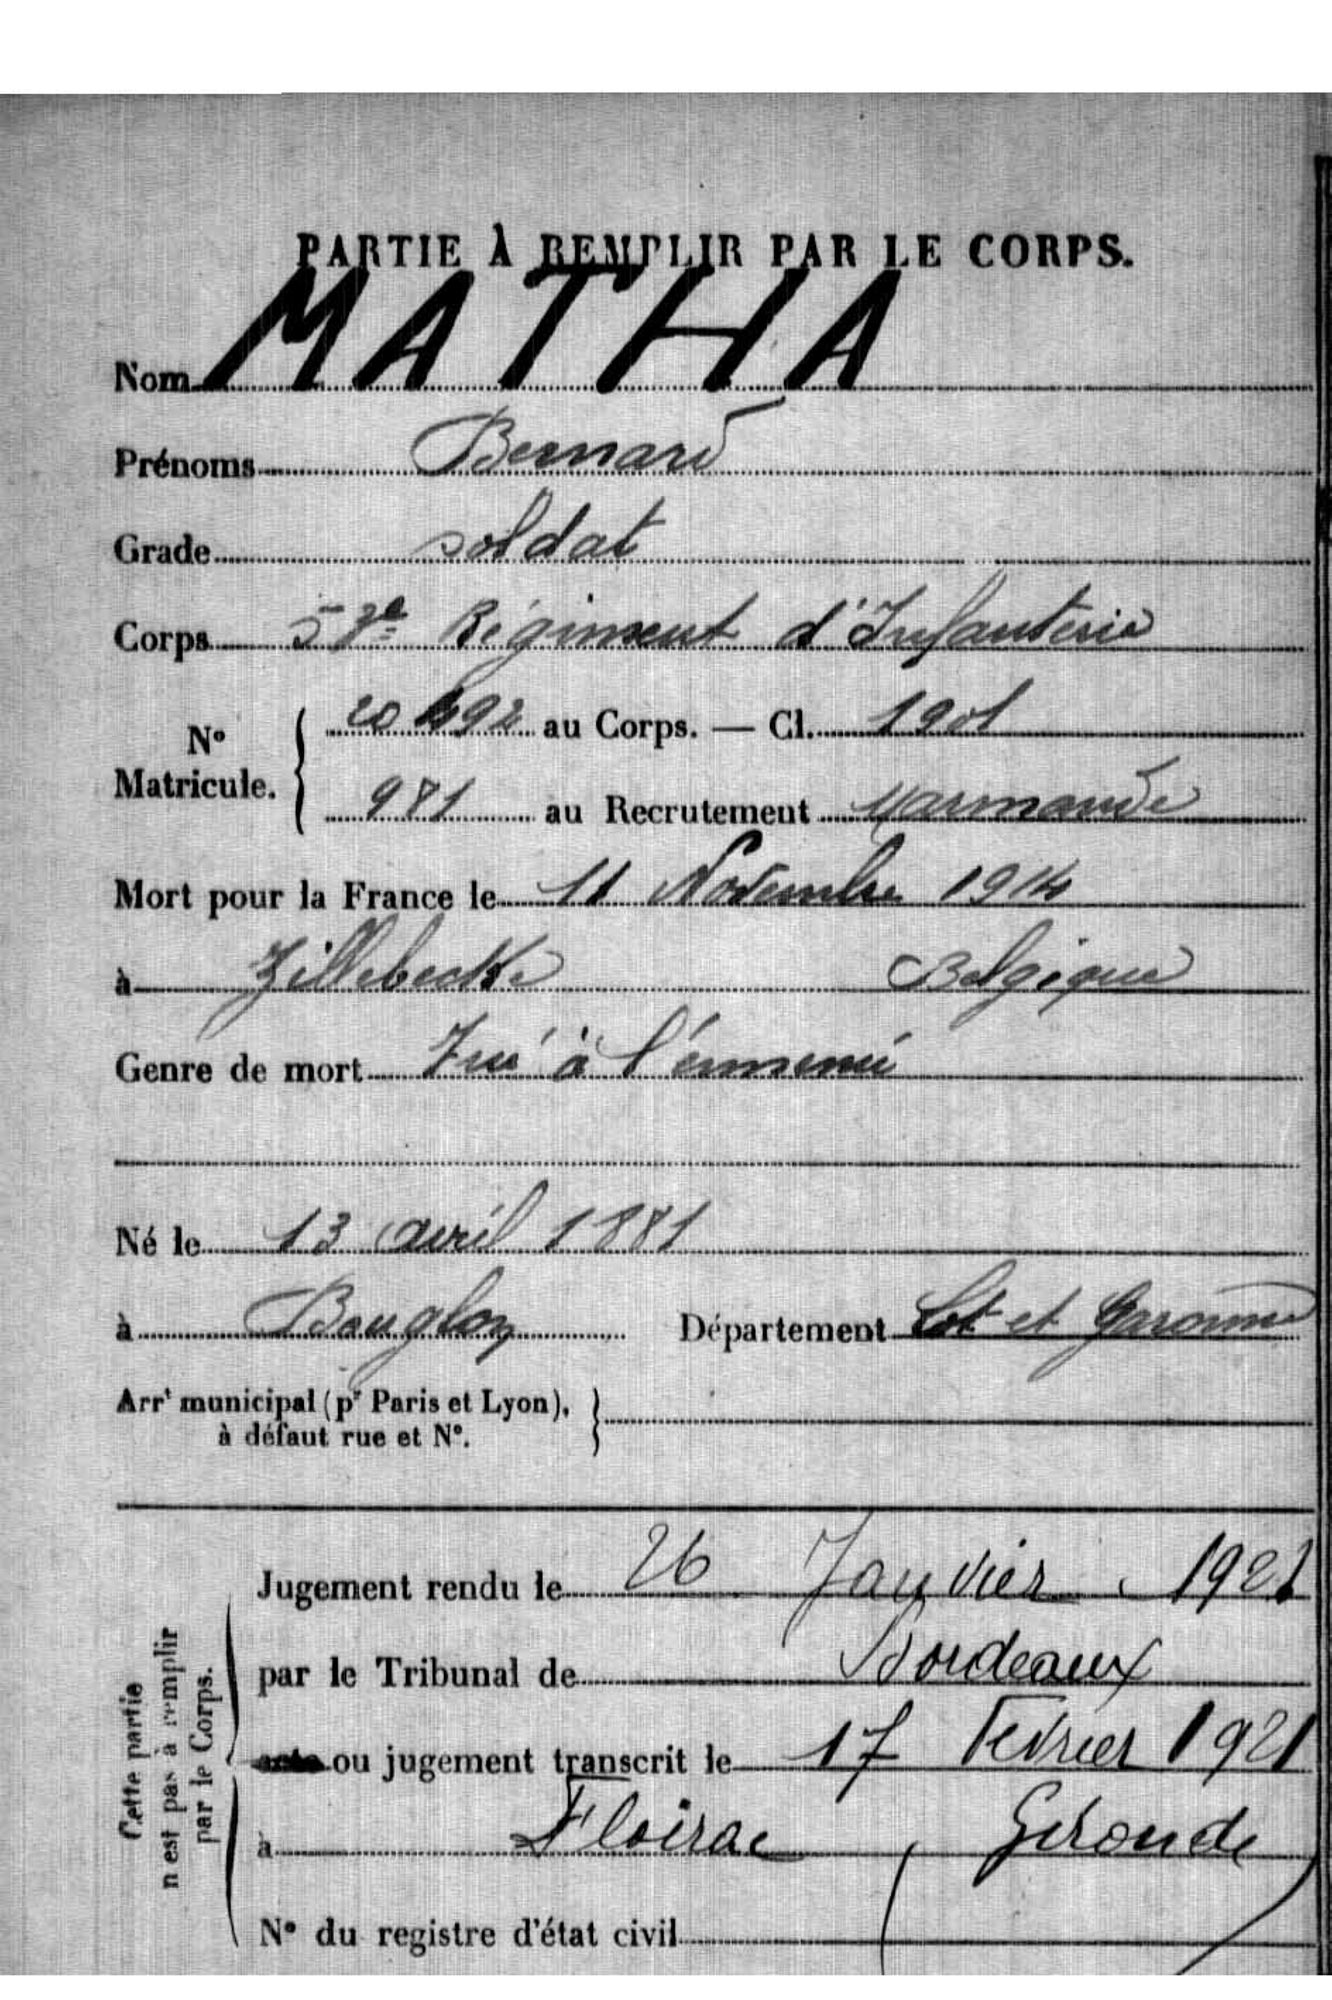 PARTIE À REMPLIR PAR LE CORPS.
Nom MATHA
Prénoms Bernard
Grade soldat
Corps Régiment d'Infanterie
N° Matricule. au Corps. — Cl. 1901
981 au Recrutement Marmande
Mort pour la France le 11 Novembre 1914
à Zillebecke Belgique
Genre de mort Tué à l'ennemi
Né le 13 avril 1881
à Bouglon Département Lot et Garonne
Arrt municipal (pr Paris et Lyon),
à défaut rue et N°.
Jugement rendu le 26 Janvier 1921
par le Tribunal de Bordeaux
acte ou jugement transcrit le 17 Février 1921
à Floirac (Gironde)
N° du registre d'état civil
Cette partie
n'est pas à remplir
par le Corps.